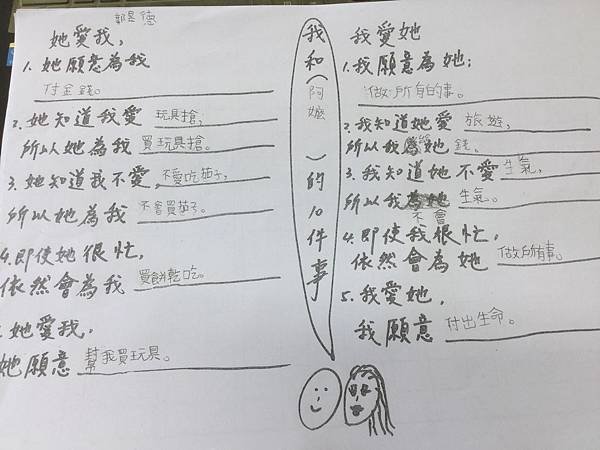 郭昱德
她愛我，
1. 她願意為我
付金錢。
2. 她知道我愛 玩具搶，
所以她為我 買玩具搶。
3. 她知道我不愛，不愛吃茄子，
所以她為我 不會買茄子。
4. 即使她很忙，
依然會為我 買餅乾吃。
她愛我，
她願意 幫我買玩具。
我和(阿嬤)的10件事
我愛她
1. 我願意為她：
做所有的事。
2. 我知道她愛 旅遊，
所以我給她 錢。
3. 我知道她不愛 生氣，
所以我不會 生氣。
4. 即使我很忙，
依然會為她 做所有事。
5. 我愛她，
我願意 付出生命。